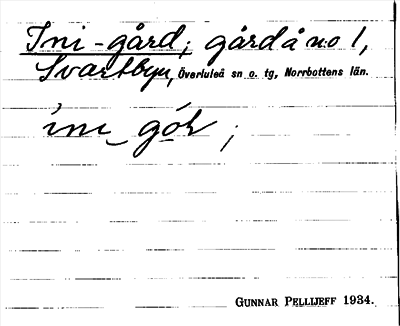 Ini-gård; gård å n:o 1,
Svartbyn, Överluleå sn o. tg, Norrbottens län.
ini_ gór ;
GUNNAR PELLIJEFF 1934.